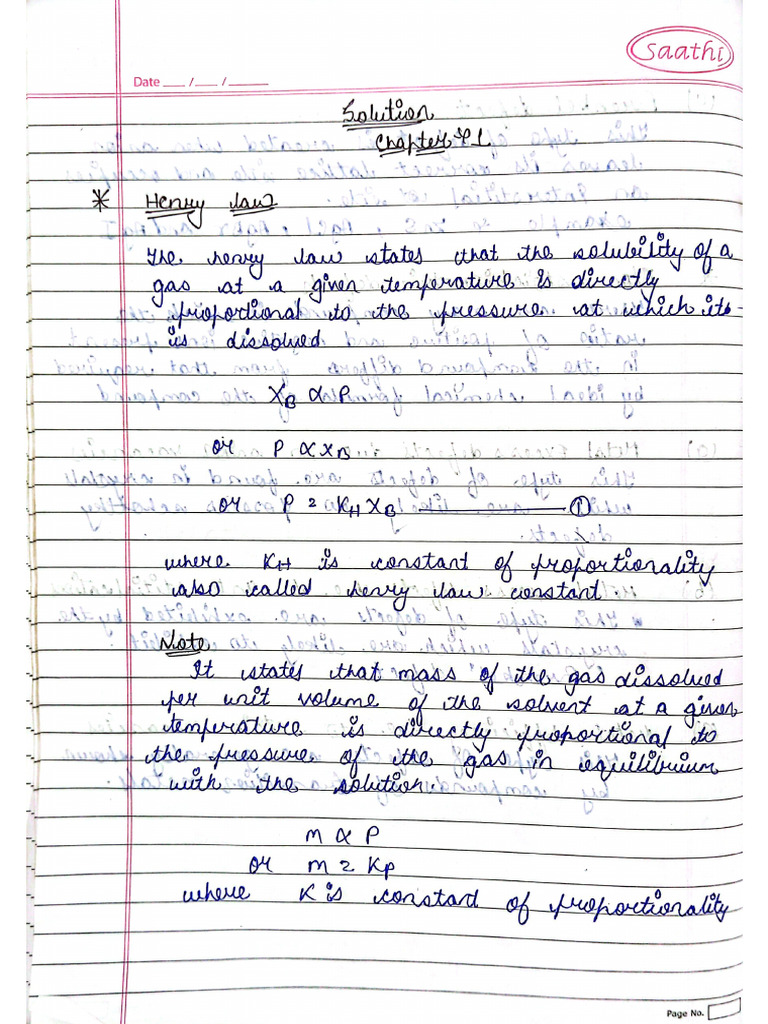 Saathi
Date ___ / ___ / _____
Solution
* Henry law
The henry law states that the solubility of a
gas at a given temperature is directly
proportional to the pressure at which its
is dissolved
XB ∝ P
or P ∝ XB
or P = KH XB ———— ①
where KH is constant of proportionality
also called henry law constant
Note
It states that mass of the gas dissolved
per unit volume of the solvent at a given
temperature is directly proportional to
the pressure of the gas in equilibrium
with the solution.
m ∝ P
or m = Kp
where K is constant of proportionality
Page No.